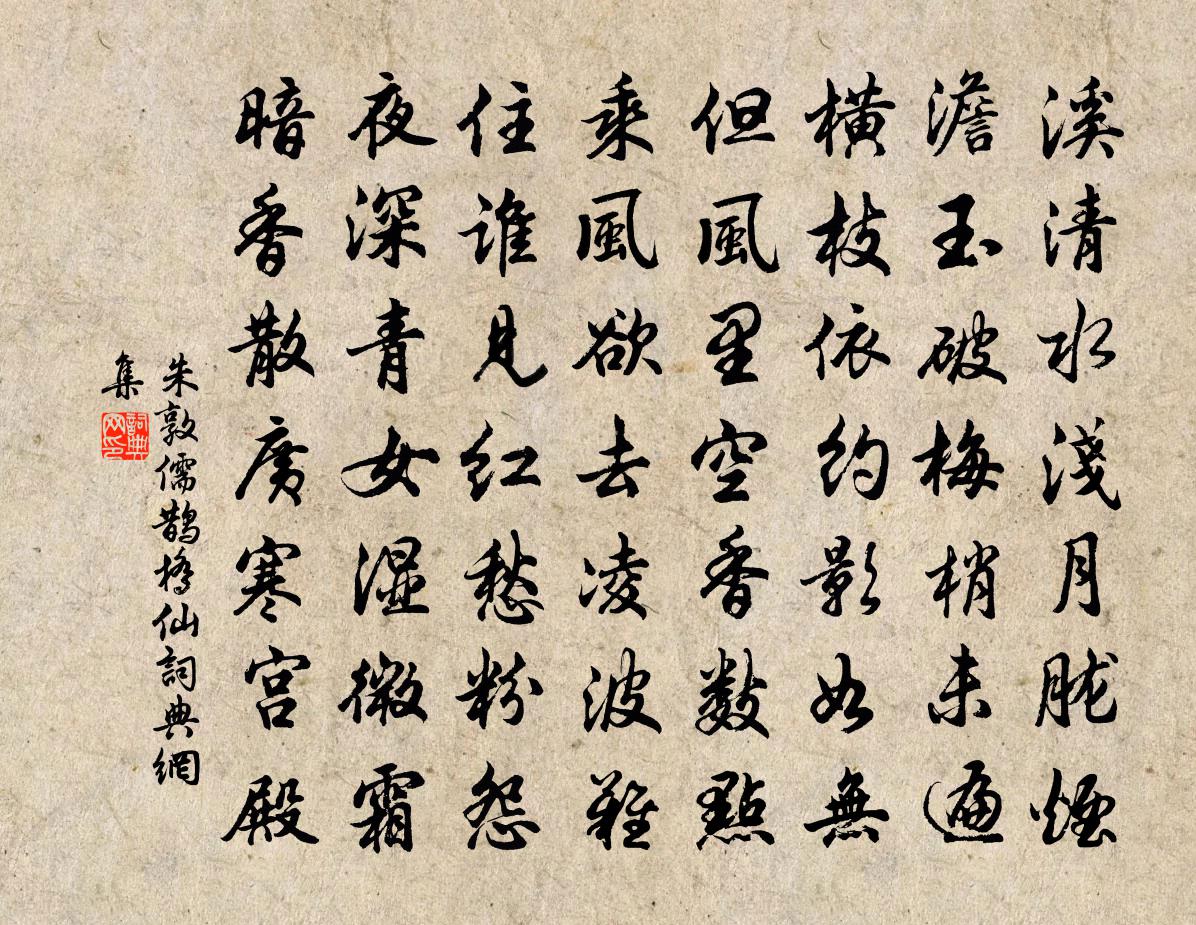 溪清水淺月胧煙
澹玉破梅梢未遍
橫枝依約影如無
但風里空香數點
乘風欲去凌波難
住誰見红愁粉怨
夜深青女湿微霜
暗香散廣寒宮殿
朱敦儒鵲橋仙詞典網
集
詞典网印